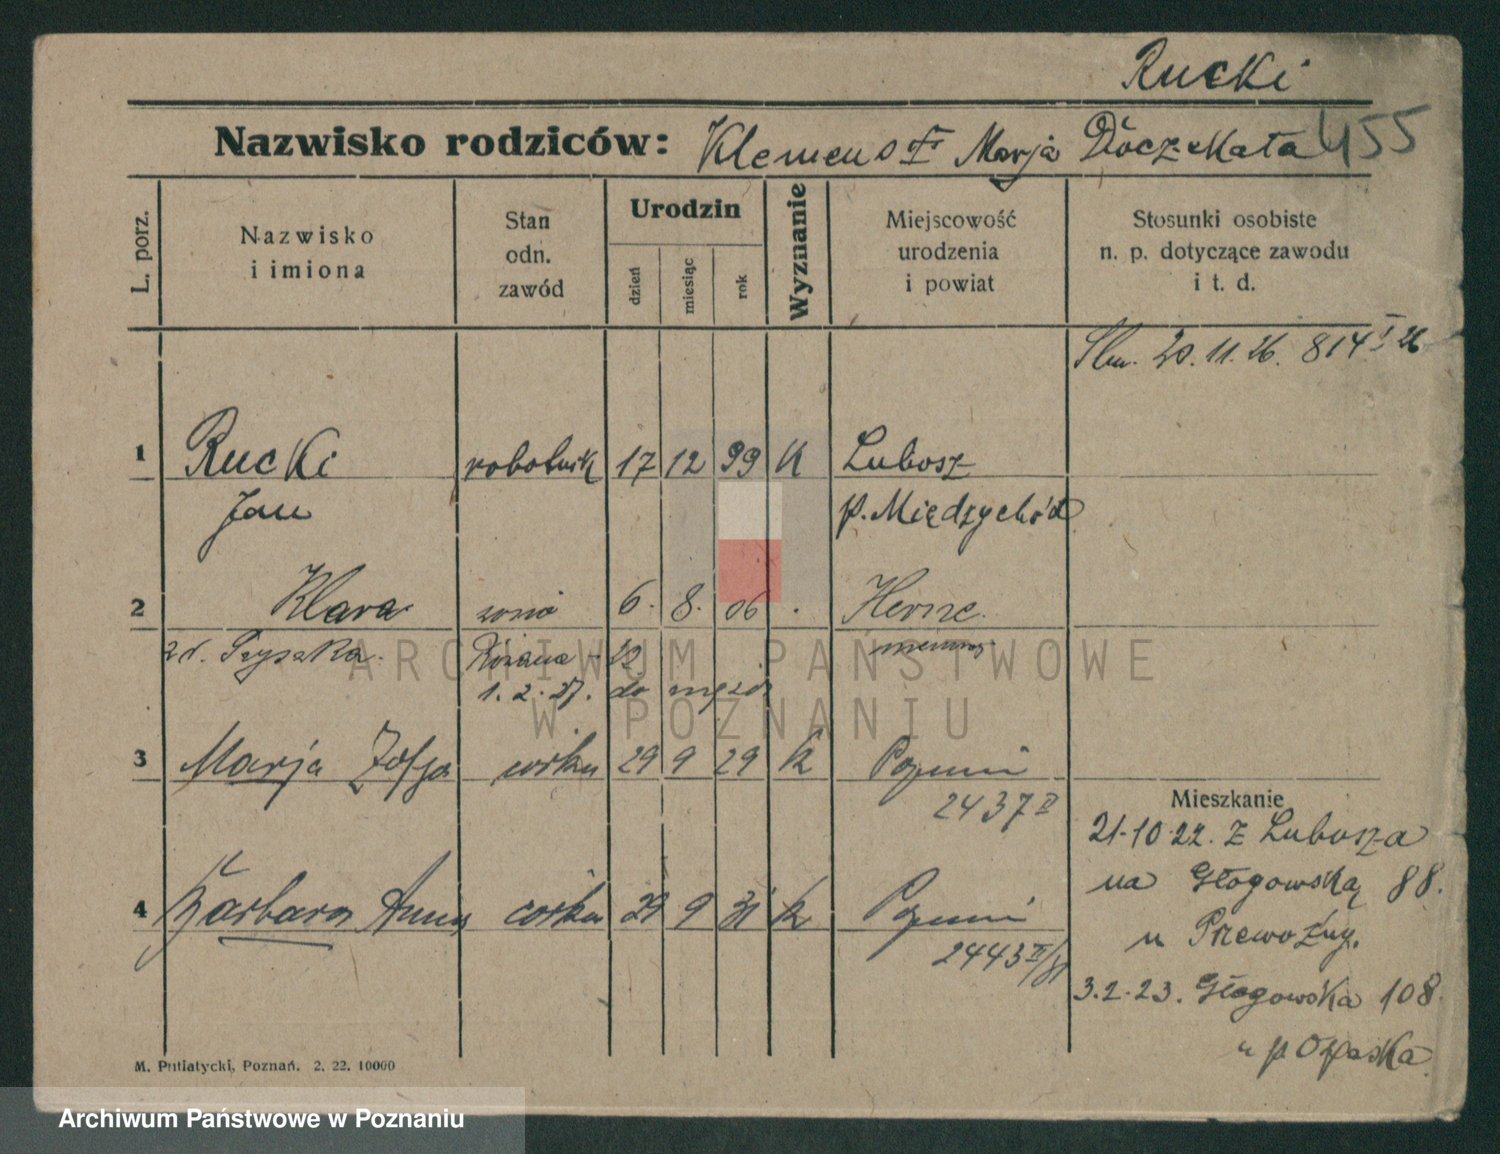 Rucki
Nazwisko rodziców: Klemens Marja Doczekała 455
L. porz.
Nazwisko
i imiona
Stan
odn.
zawód
Urodzin
dzień
miesiąc
rok
Wyznanie
Miejscowość
urodzenia
i powiat
Stosunki osobiste
n. p. dotyczące zawodu
i t. d.
20. 11. 26. 814 I 26
1 Rucki robotnik 17 12 99 K Lubosz
Jan p. Międzychód
2 Klara żona 6. 8. 06 Herne
zd. Pryszka Różana 22
1. 2. 27. do męża
3 Marja Zofja córka 29 9 29 k Poznań
2437 II
4 Barbara Anna córka 21 9 31 k Poznań
2443 II/31
Mieszkanie
21-10-22. z Lubosza
na Głogowską 88.
u Przewoźny.
3.2.23. Głogowska 108
u p
M. Putiatycki, Poznań. 2. 22. 10000
ARCHIWUM PAŃSTWOWE
W POZNANIU
Archiwum Państwowe w Poznaniu